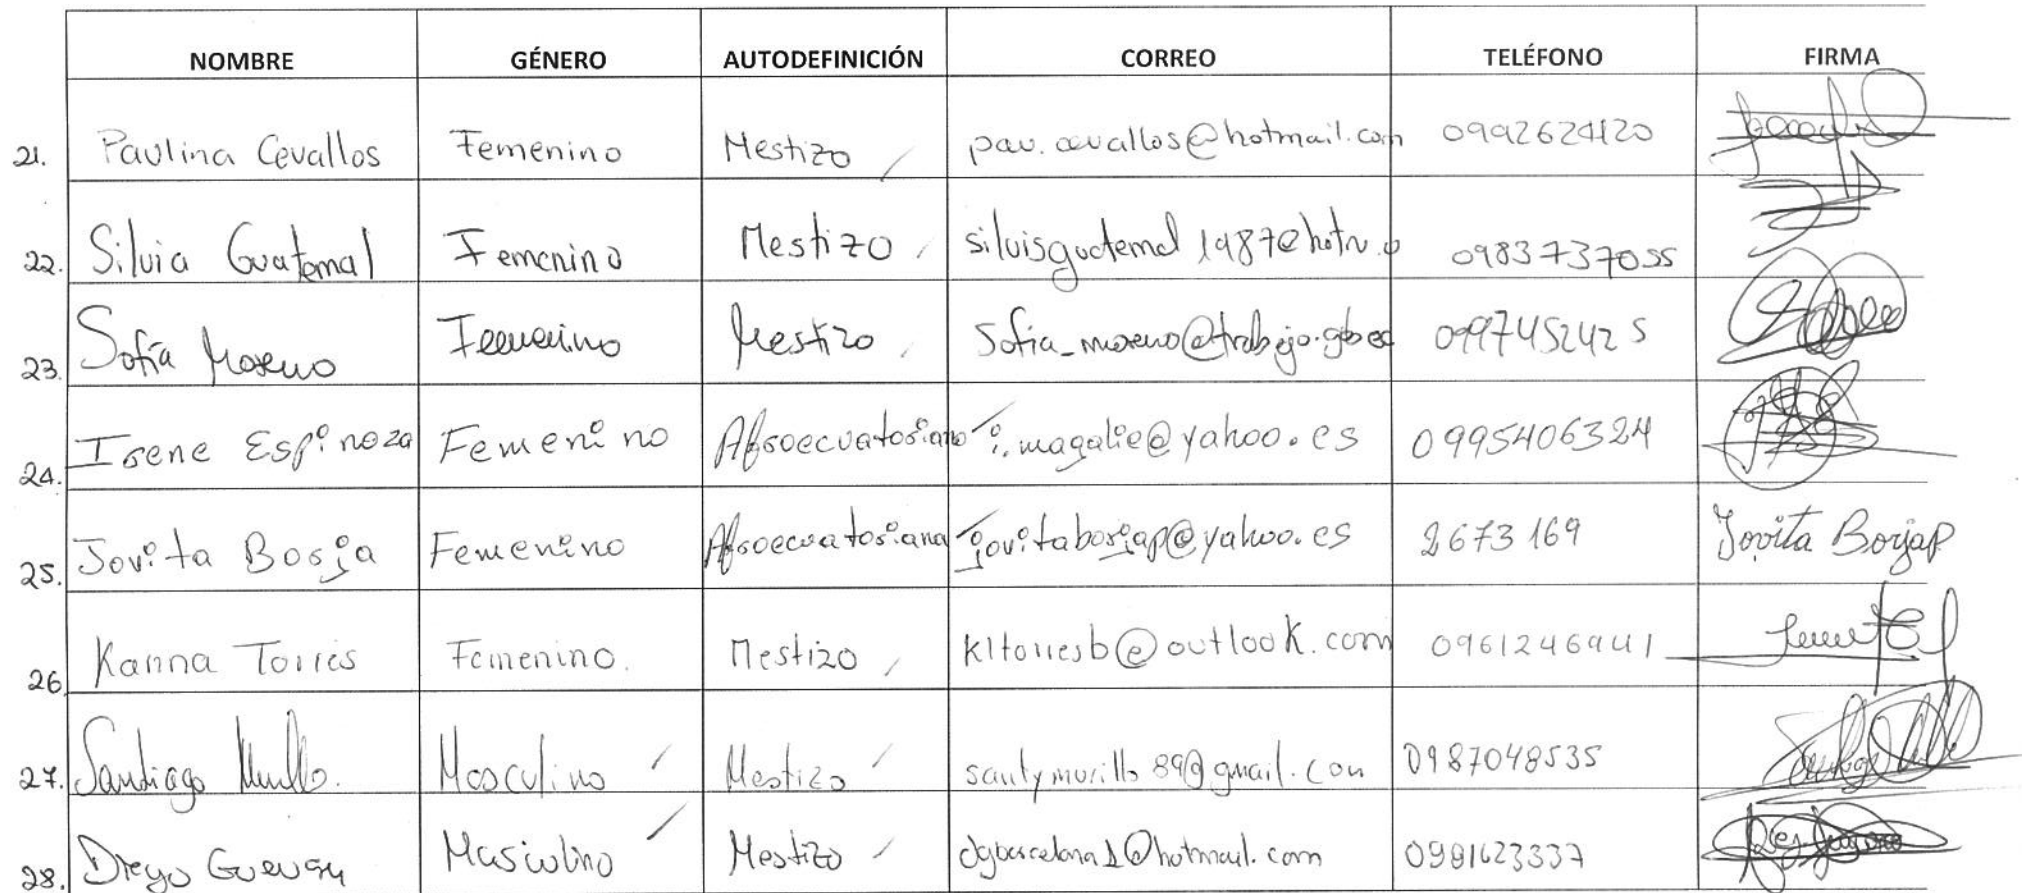 NOMBRE GÉNERO AUTODEFINICIÓN CORREO TELÉFONO FIRMA
21. Paulina Cevallos Femenino Mestizo pau.cevallos@hotmail.com 0992624120
22. Silvia Guatemal Femenino Mestizo 0983737055
23. Sofía Moreno Femenino Mestizo Sofia_moreno@trabajo.gob.ec 0997452425
24. Irene Espinoza Femenino Afroecuatoriano i.magalie@yahoo.es 0995406324
25. Jovita Borja Femenino Afroecuatoriana jovitaborjap@yahoo.es 2673169 Jovita Borjap
26. Karina Torres Femenino. Mestizo kltorresb@outlook.com 0961246941
27. Santiago Murillo. Masculino Mestizo santymurillo89@gmail.com 0987048535
28. Diego Guevara Masculino Mestizo dgbarcelona1@hotmail.com 0981623337